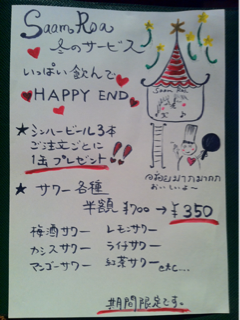 Saam Rua
冬のサービス
いっぱい飲んで
HAPPY END
★シンハービール3本
ご注文ごとに
1缶プレゼント!!
★サワー各種
半額 ¥700→¥350
梅酒サワー レモンサワー
カシスサワー ライチサワー
マンゴーサワー 紅茶サワー etc...
อร่อยมากมากกก
おいしいよ〜
期間限定です。